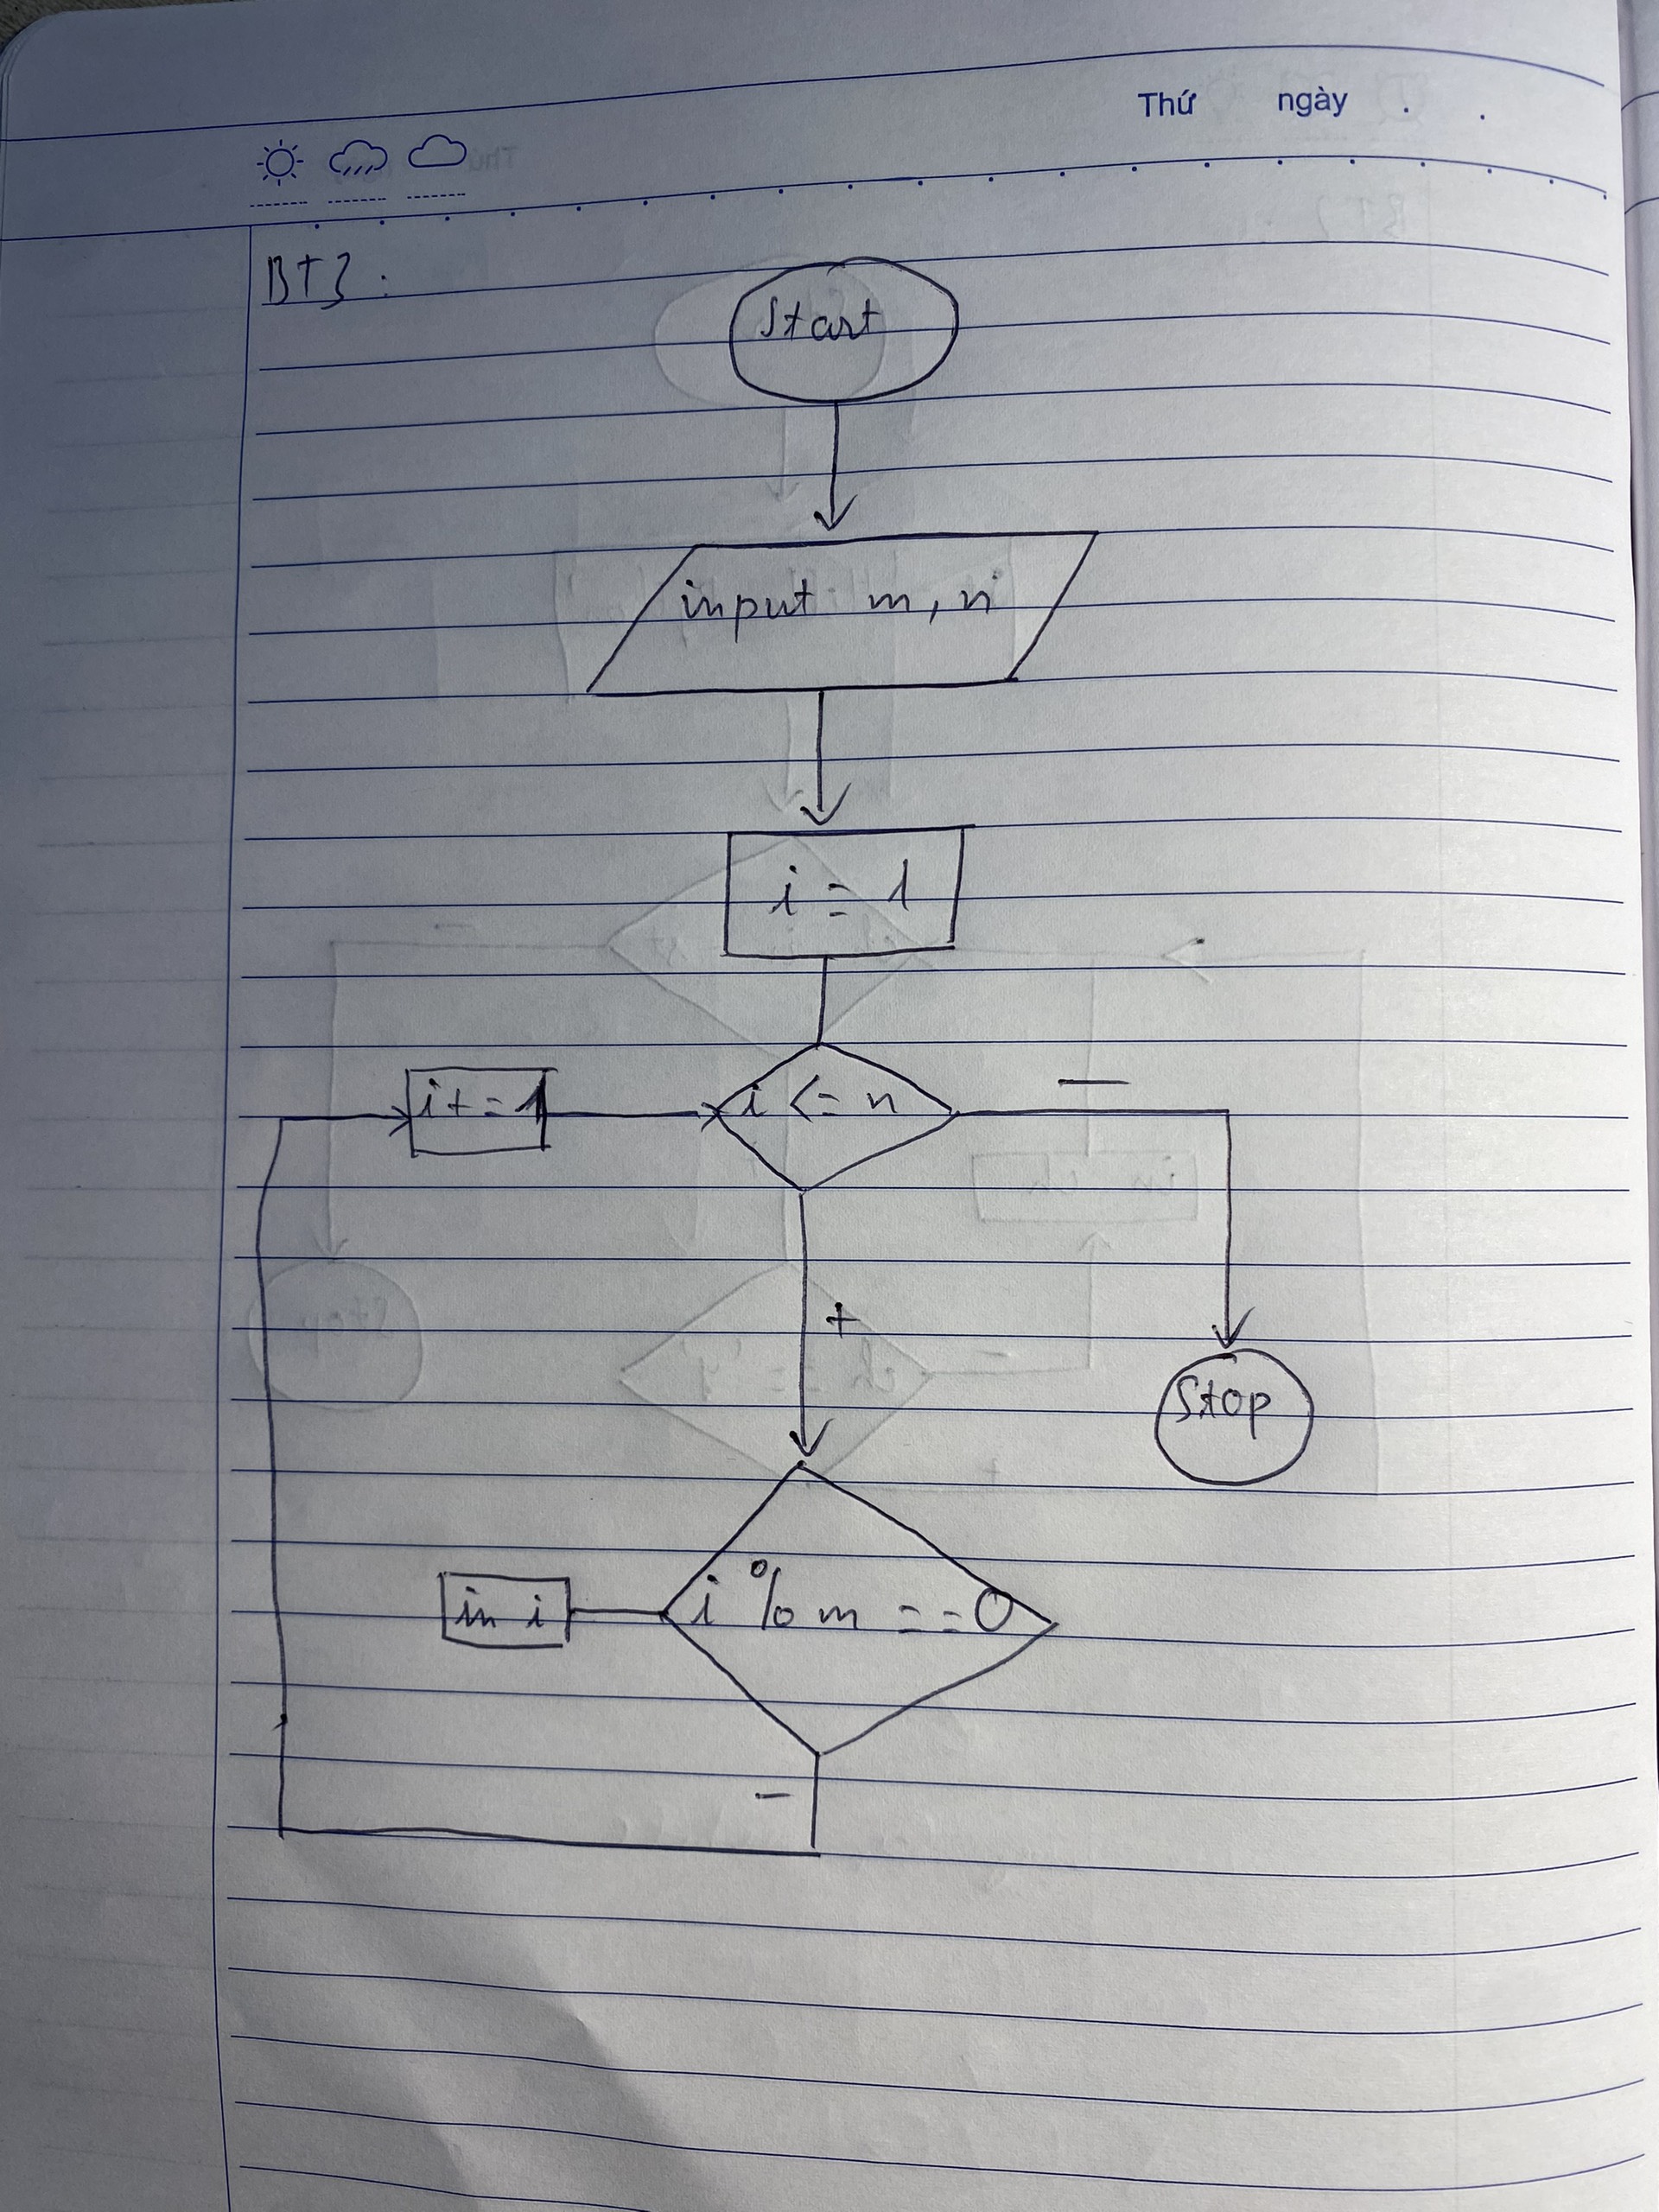 Thứ ngày . .
BT3 :
Start
input m, n
i = 1
i += 1
i <= n
—
+
Stop
in i
i % m == 0
-